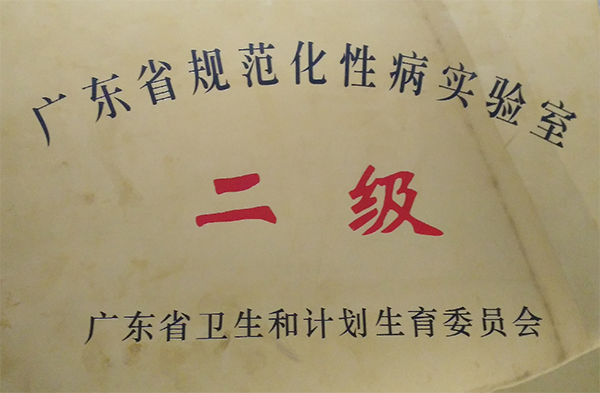 广东省规范化性病实验室
二级
广东省卫生和计划生育委员会